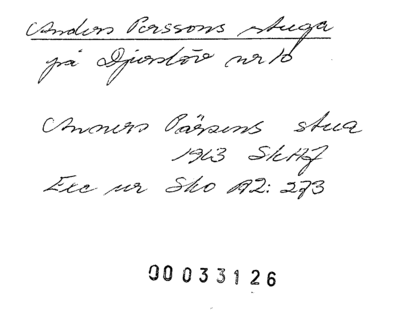 Anders Perssons stuga
på Djurslöv nr 10
Anners Pärsens stua
1913 SkHf
Exc ur Sko A2: 273
00033126